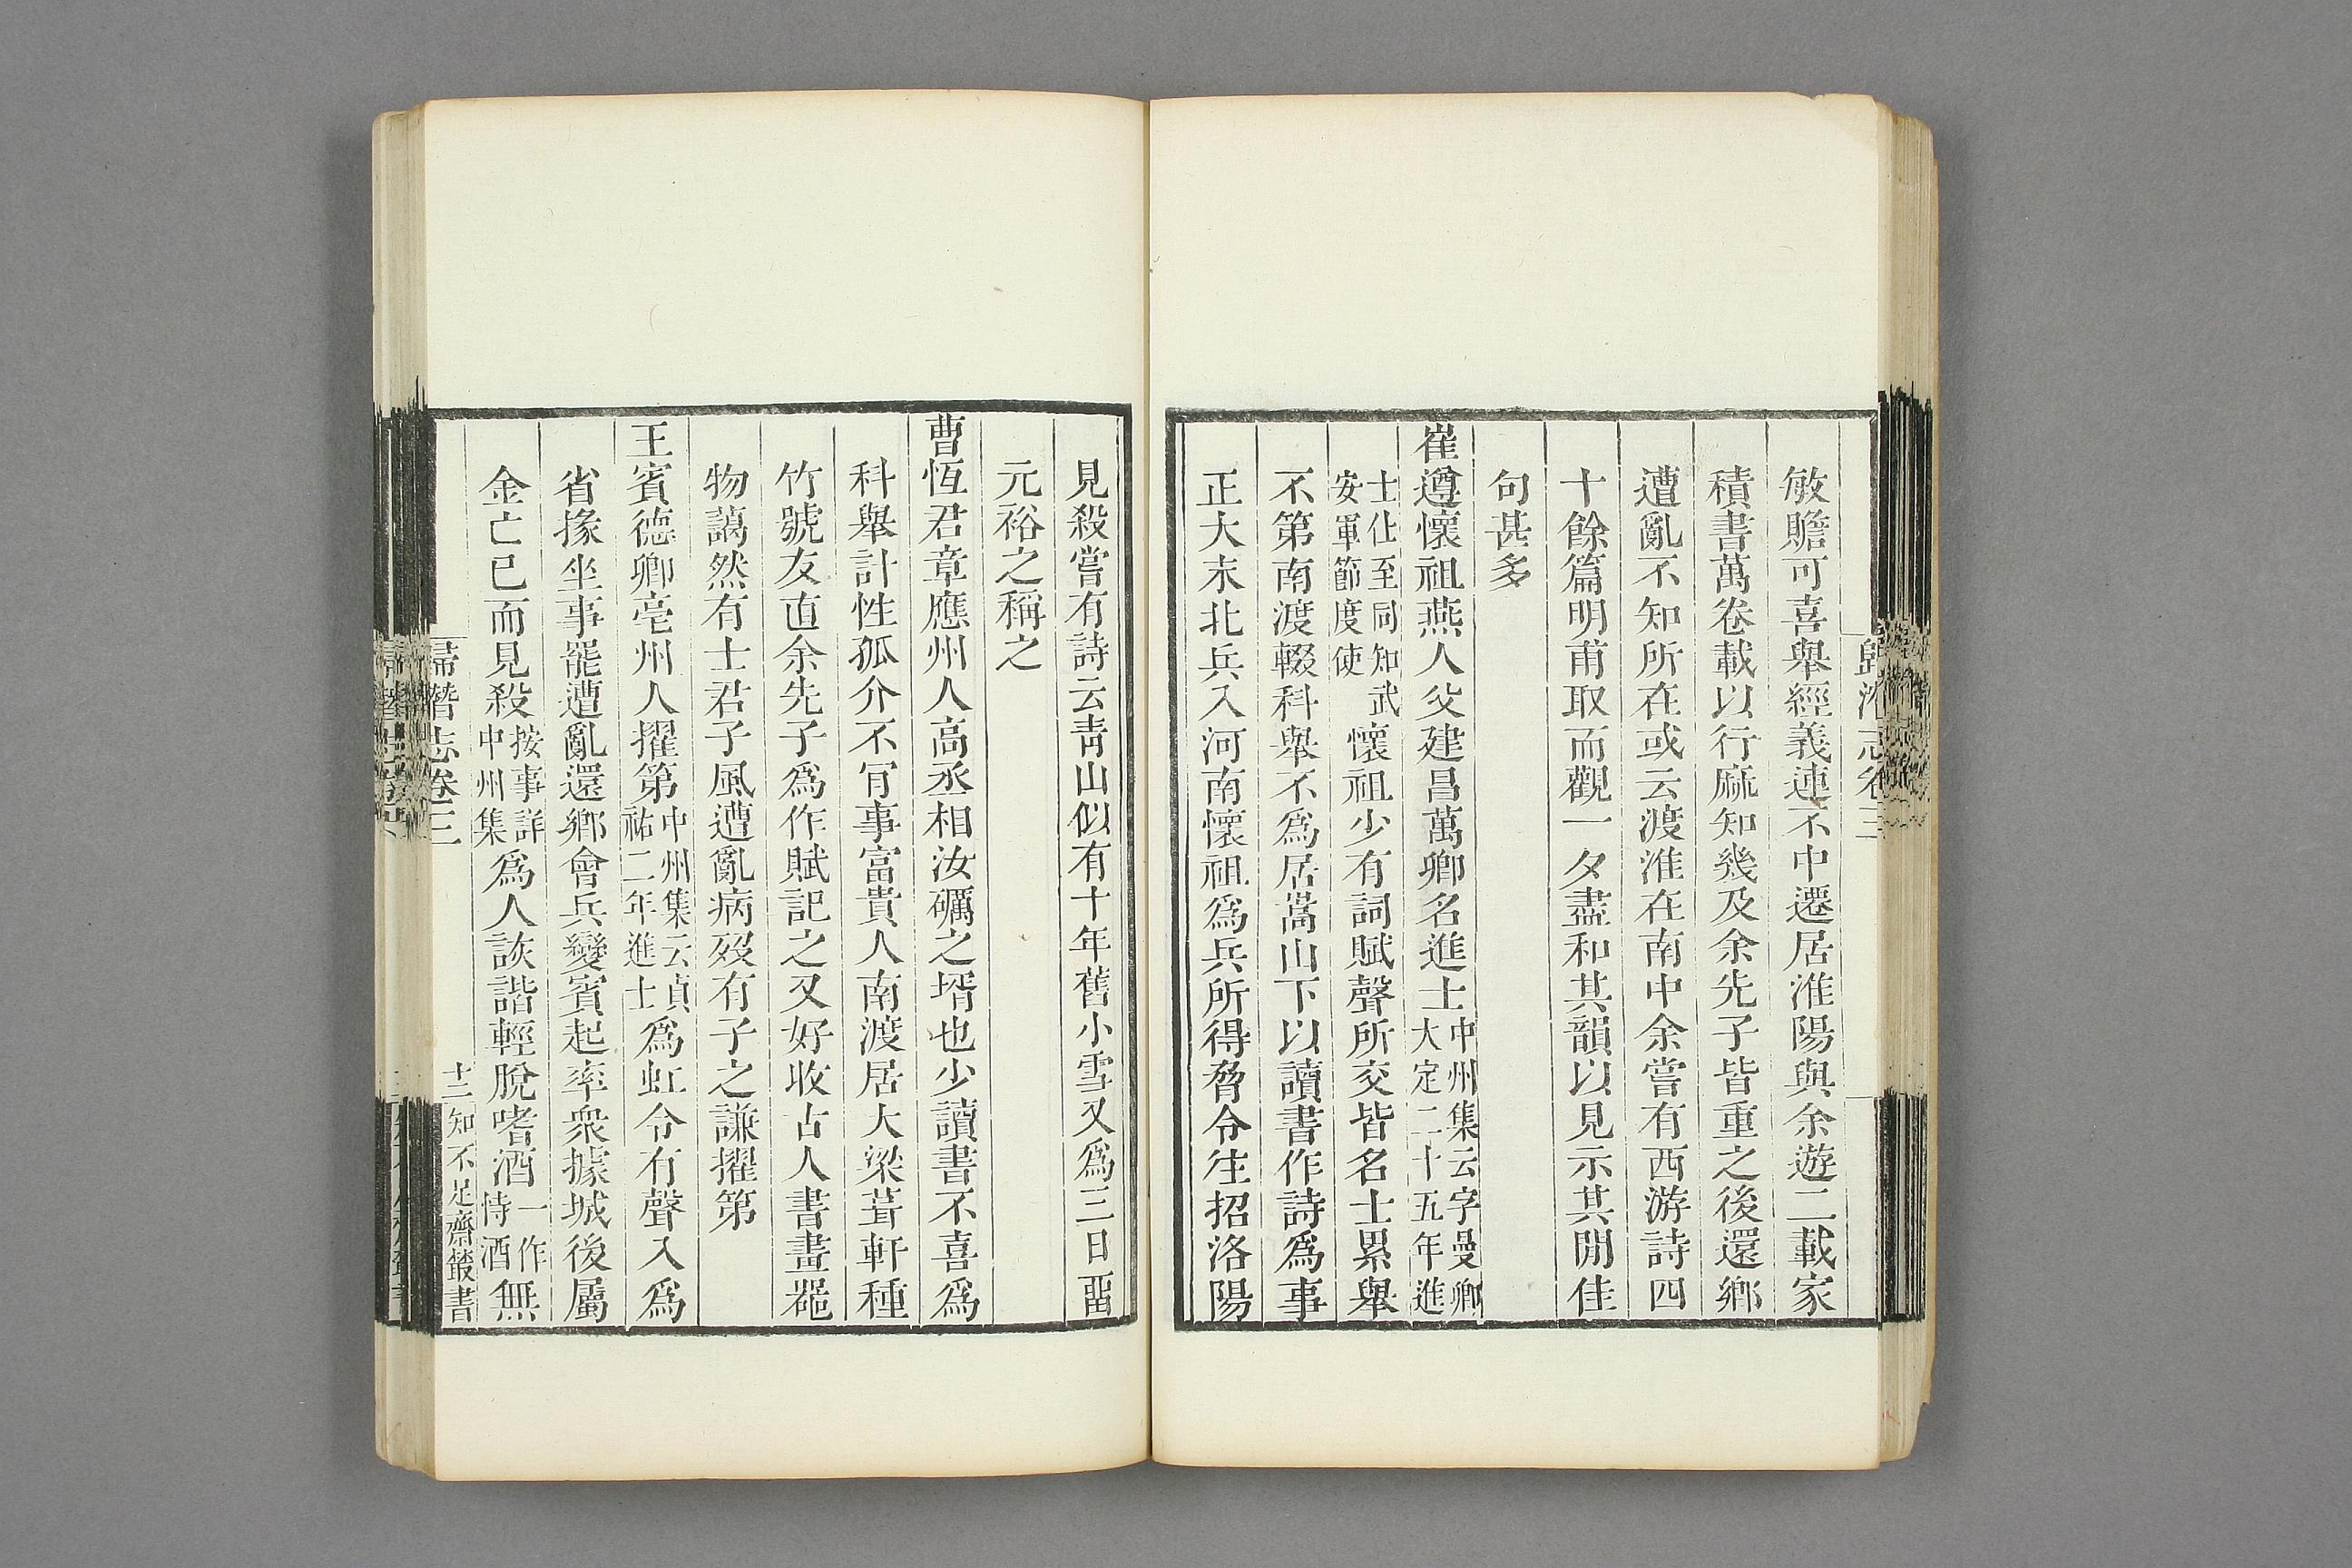 敏贍可喜舉經義連不中遷居淮陽與余遊二載家
積書萬卷載以行麻知幾及余先子皆重之後還鄉
遭亂不知所在或云渡淮在南中余嘗有西游詩四
十餘篇明甫取而觀一夕盡和其韻以見示其閒佳
句甚多
崔遵懷祖燕人父建昌萬卿名進士中州集云字曼卿大定二十五年進
士仕至同知武安軍節度使懷祖少有詞賦聲所交皆名士累舉
不第南渡輟科舉不爲居嵩山下以讀書作詩爲事
正大末北兵入河南懷祖爲兵所得脅令往招洛陽
見殺嘗有詩云靑山似有十年舊小雪又爲三日畱
元裕之稱之
曹恆君章應州人高丞相汝礪之壻也少讀書不喜爲
科舉計性孤介不肎事富貴人南渡居大梁葺軒種
竹號友直余先子爲作賦記之又好收古人書畫器
物藹然有士君子風遭亂病歿有子之謙擢第
王賓德卿亳州人擢第中州集云貞祐二年進士爲虹令有聲入爲
省掾坐事罷遭亂還鄉會兵變賓起率衆據城後屬
金亡已而見殺按事詳中州集爲人詼諧輕脫嗜酒一作恃酒無
歸潛志卷三
十二
知不足齋叢書